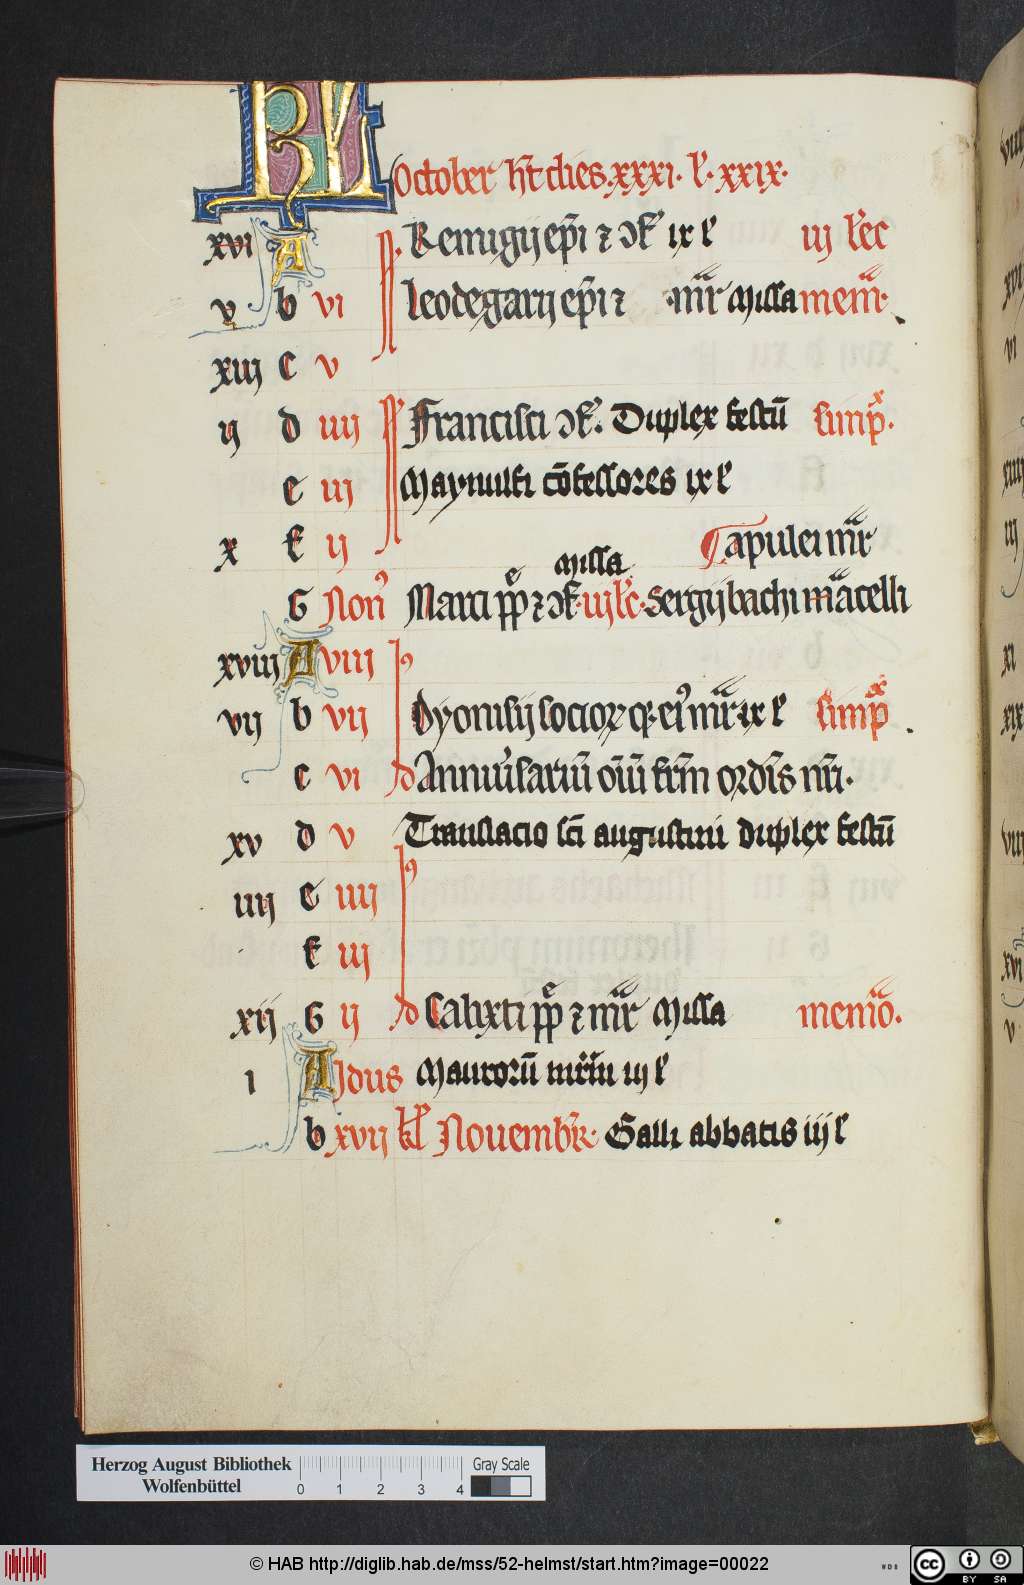 KL October ht dies .xxxi. l. xxix.
xvi A Remigij epi ⁊ ↄf ix l iij lec
v b vi Leodegarij epi ⁊ mr Missa mem.
xiij c v
ij d iiij Francisci ↄf. Duplex festū simpx.
e iij Maynulfi cōfessores ix l
x f ij Apulei mr
G Non Marci pp e ⁊ ↄf. missa iij lc. Sergij bachi marcelli
xviij A viij
vij b vij Dyonisij socior q. ei mr ix l simpx
c vi Anniūsariū oīū frm ordis nri.
xv d v Translacio sci augustini duplex festū
iiij e iiij
f iij
xij G ij Calixti pp e ⁊ mr Missa memo.
i A Jdus Maurorū mrm iij l
b xvij kl Nouembr. Galli abbatis iij l
Herzog August Bibliothek
Wolfenbüttel
0 1 2 3 4
Gray Scale
© HAB http://diglib.hab.de/mss/52-helmst/start.htm?image=00022
cc BY SA